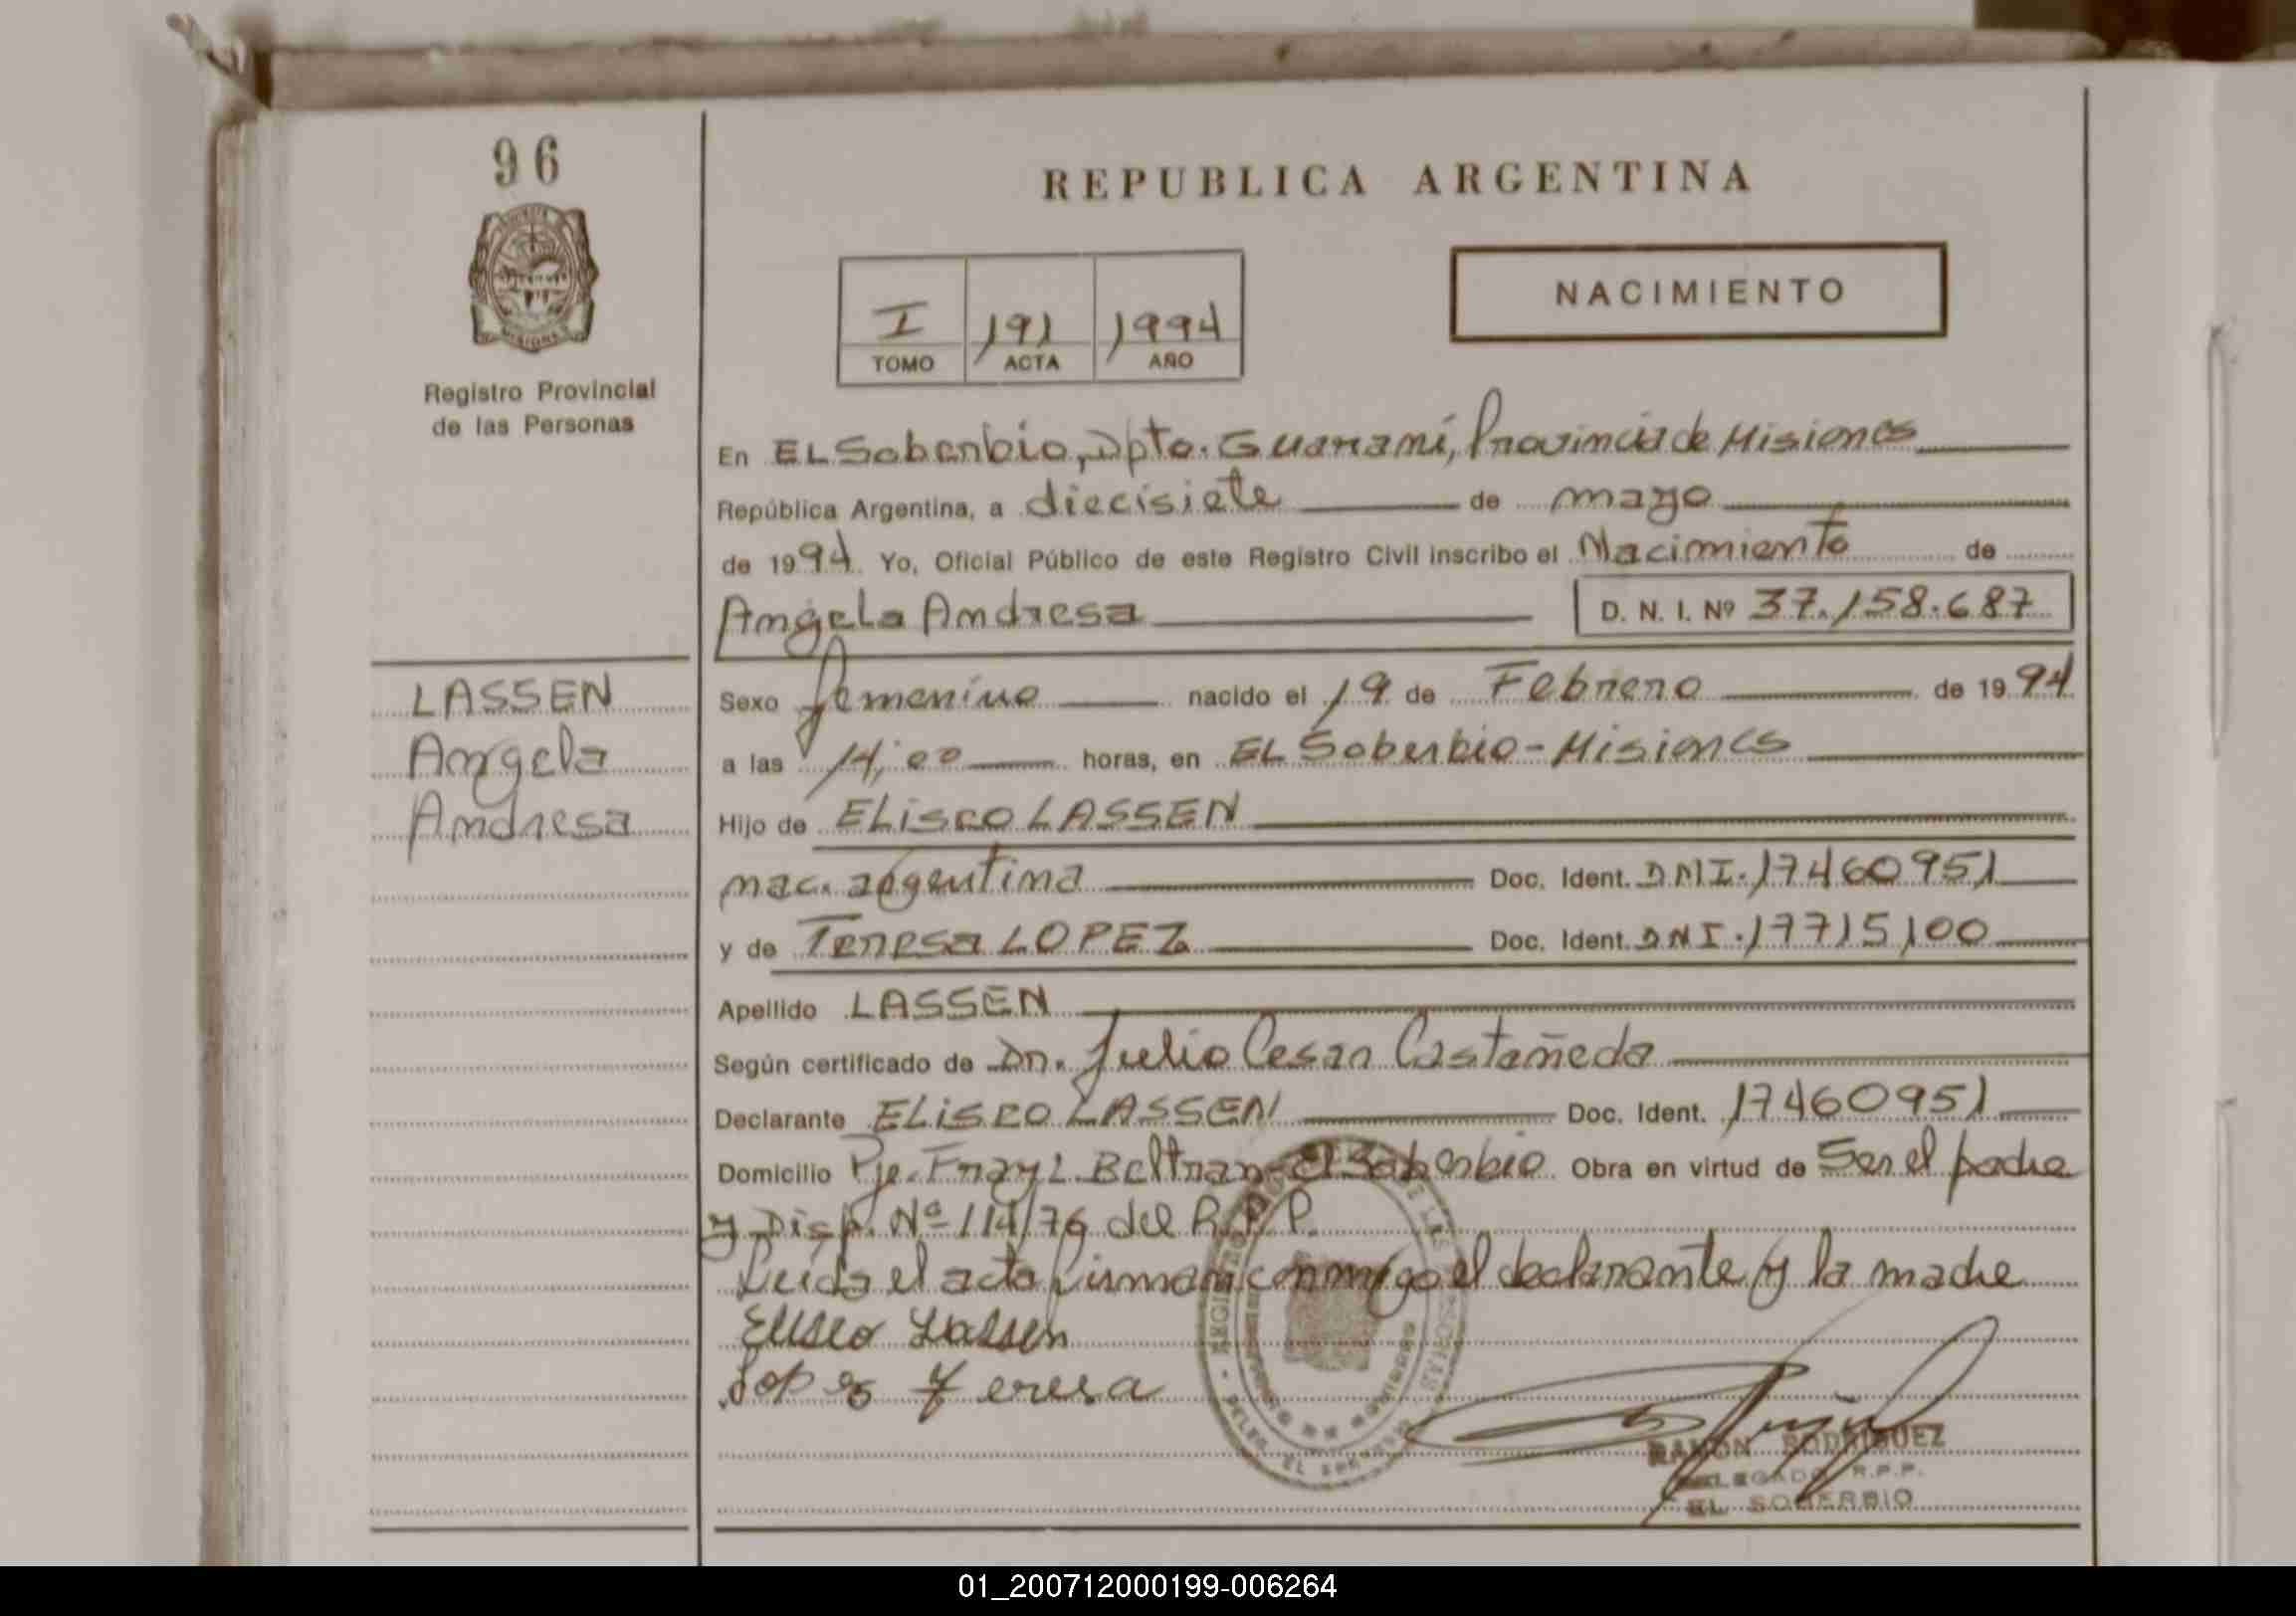 96
REPUBLICA ARGENTINA
MISIONES
NACIMIENTO
I 191 1994
TOMO ACTA AÑO
Registro Provincial
de las Personas
En EL Soberbio, Dpto. Guaraní, Provincia de Misiones
República Argentina, a diecisiete de mayo
de 1994 Yo, Oficial Público de este Registro Civil inscribo el Nacimiento de
Angela Andresa D. N. I. Nº 37.158.687
LASSEN
Angela
Andresa
Sexo femenino nacido el 19 de Febrero de 1994
a las 14,00 horas, en EL Soberbio - Misiones
Hijo de ELiseo LASSEN
nac. argentina Doc. Ident. DNI. 17460951
y de Teresa LOPEZ Doc. Ident. DNI. 17715100
Apellido LASSEN
Según certificado de Dr. Julio Cesar Castañeda
Declarante ELISEO LASSEN Doc. Ident. 17460951
Domicilio Pje. Fray L. Beltran - El Soberbio Obra en virtud de Ser el padre
y Disp. Nº 114/76 del R.P.P.
Leída el acta firman conmigo el declarante y la madre
Eliseo Lassen
Lopes Teresa
RAMON RODRIGUEZ
DELEGADO R.P.P.
EL SOBERBIO
01_200712000199-006264